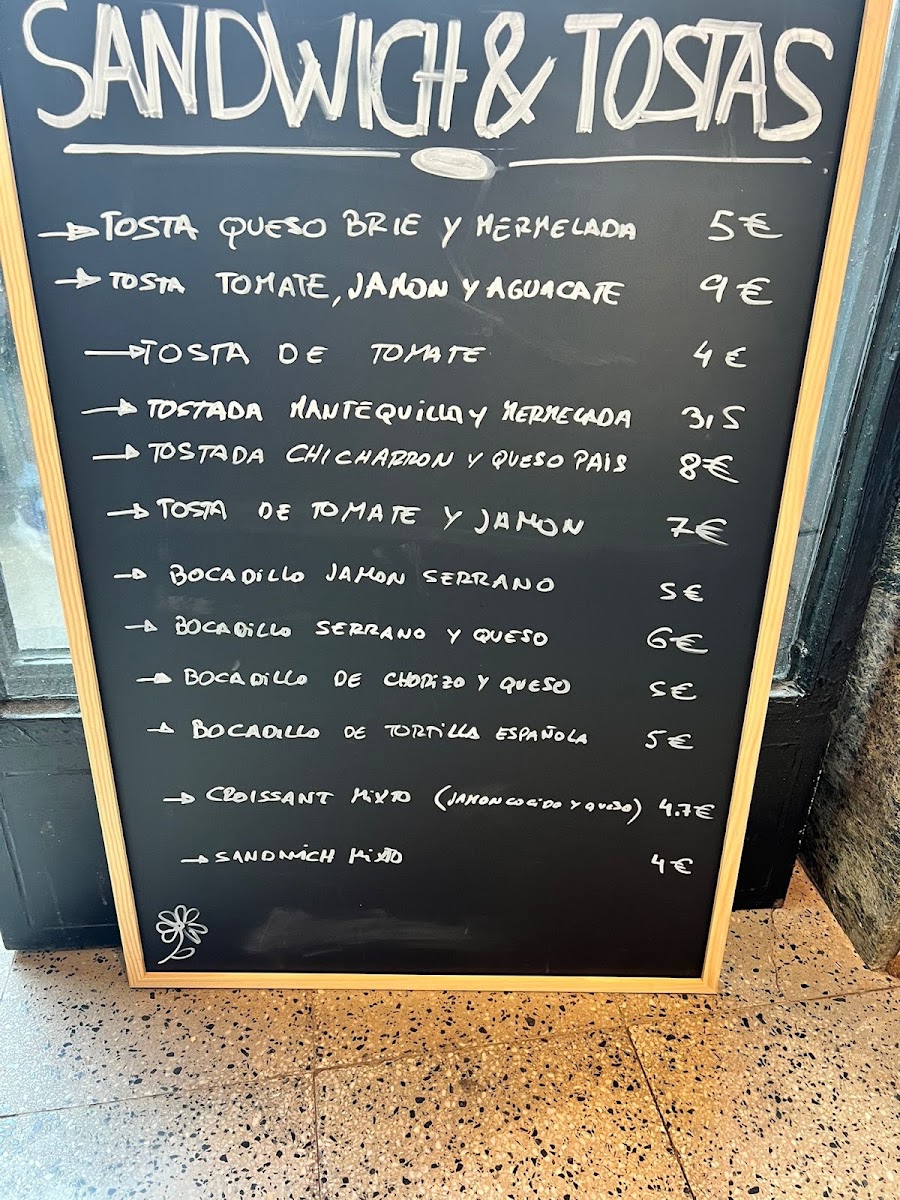 SANDWICH & TOSTAS
→ TOSTA QUESO BRIE Y MERMELADA 5€
→ TOSTA TOMATE, JAMON Y AGUACATE 9€
→ TOSTA DE TOMATE 4€
→ TOSTADA MANTEQUILLA Y MERMELADA 3,5
→ TOSTADA CHICHARRON Y QUESO PAIS 8€
→ TOSTA DE TOMATE Y JAMON 7€
→ BOCADILLO JAMON SERRANO 5€
→ BOCADILLO SERRANO Y QUESO 6€
→ BOCADILLO DE CHORIZO Y QUESO 5€
→ BOCADILLO DE TORTILLA ESPAÑOLA 5€
→ CROISSANT MIXTO (JAMON COCIDO Y QUESO) 4.7€
→ SANDWICH MIXTO 4€